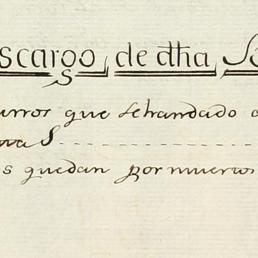 scargo de dha
urros que se han dado
S
s quedan por muertos